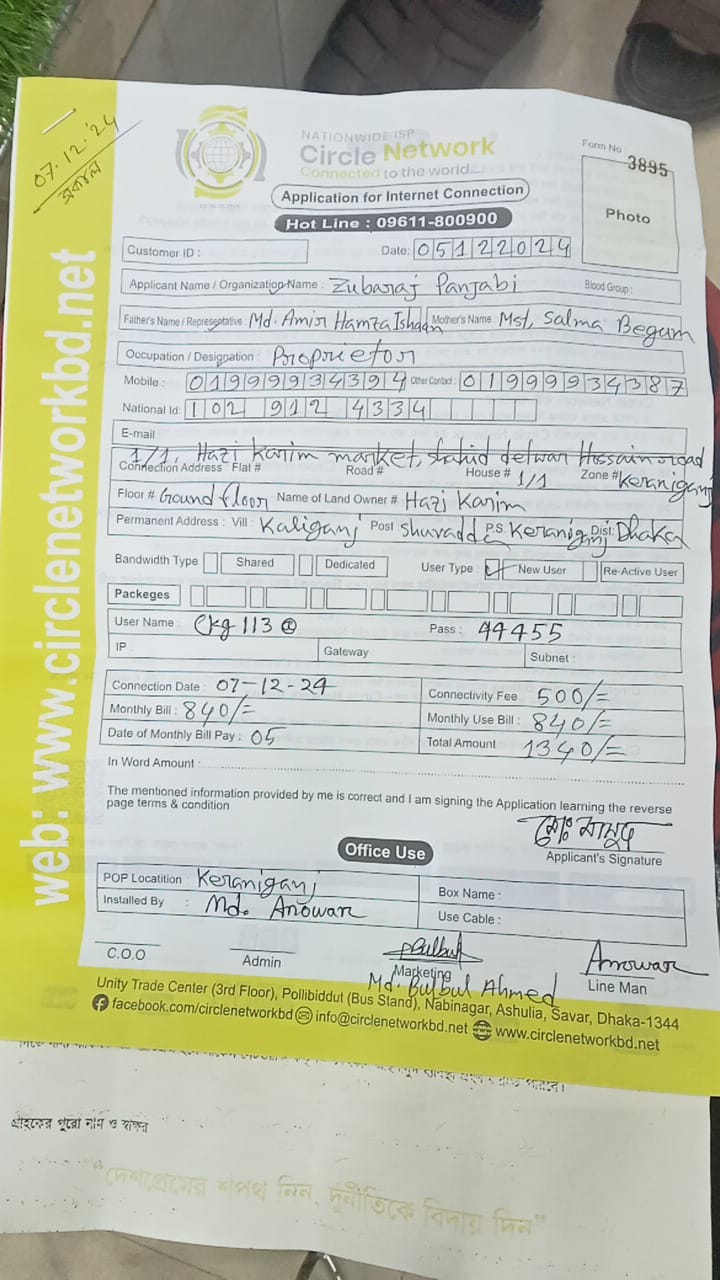 07.12.'24
সকাল
NATIONWIDE ISP
Circle Network
Connected to the world....
Form No 3895
Photo
Application for Internet Connection
Hot Line : 09611-800900
Customer ID :
Date: 05122024
Applicant Name / Organization Name : Zubaraj Panjabi Blood Group :
Father's Name / Representative Md. Amir Hamza Ishaan Mother's Name Mst, Salma Begum
Occupation / Designation : Proprietor
Mobile : 01999934394 Other Contact : 01999934387
National Id: 102 912 4334
E-mail
1/1, Hazi Karim market, shahid delwar Hossain road
Connection Address Flat # Road # House # 1/1 Zone # Keraniganj
Floor # Ground floor Name of Land Owner # Hazi Karim
Permanent Address : Vill : Kaliganj Post Shuvadda P.S Keraniganj Dist: Dhaka
Bandwidth Type Shared Dedicated User Type : New User Re-Active User
Packeges
User Name : Ckg 113 Pass : 44455
IP : Gateway Subnet :
Connection Date : 07-12-24 Connectivity Fee : 500/=
Monthly Bill : 840/= Monthly Use Bill : 840/=
Date of Monthly Bill Pay : 05 Total Amount 1340/=
In Word Amount :
The mentioned information provided by me is correct and I am signing the Application learning the reverse
page terms & condition
মোঃ মাসুদ
Applicant's Signature
Office Use
POP Locatition : Keraniganj Box Name :
Installed By : Md. Anowar Use Cable :
C.O.O Admin Bulbul Marketing Anowar Line Man
Md. Bulbul Ahmed
Unity Trade Center (3rd Floor), Pollibiddut (Bus Stand), Nabinagar, Ashulia, Savar, Dhaka-1344
facebook.com/circlenetworkbd info@circlenetworkbd.net www.circlenetworkbd.net
web: www.circlenetworkbd.net
গ্রাহকের পুরো নাম ও স্বাক্ষর
“দেশপ্রেমের শপথ নিন, দুর্নীতিকে বিদায় দিন”